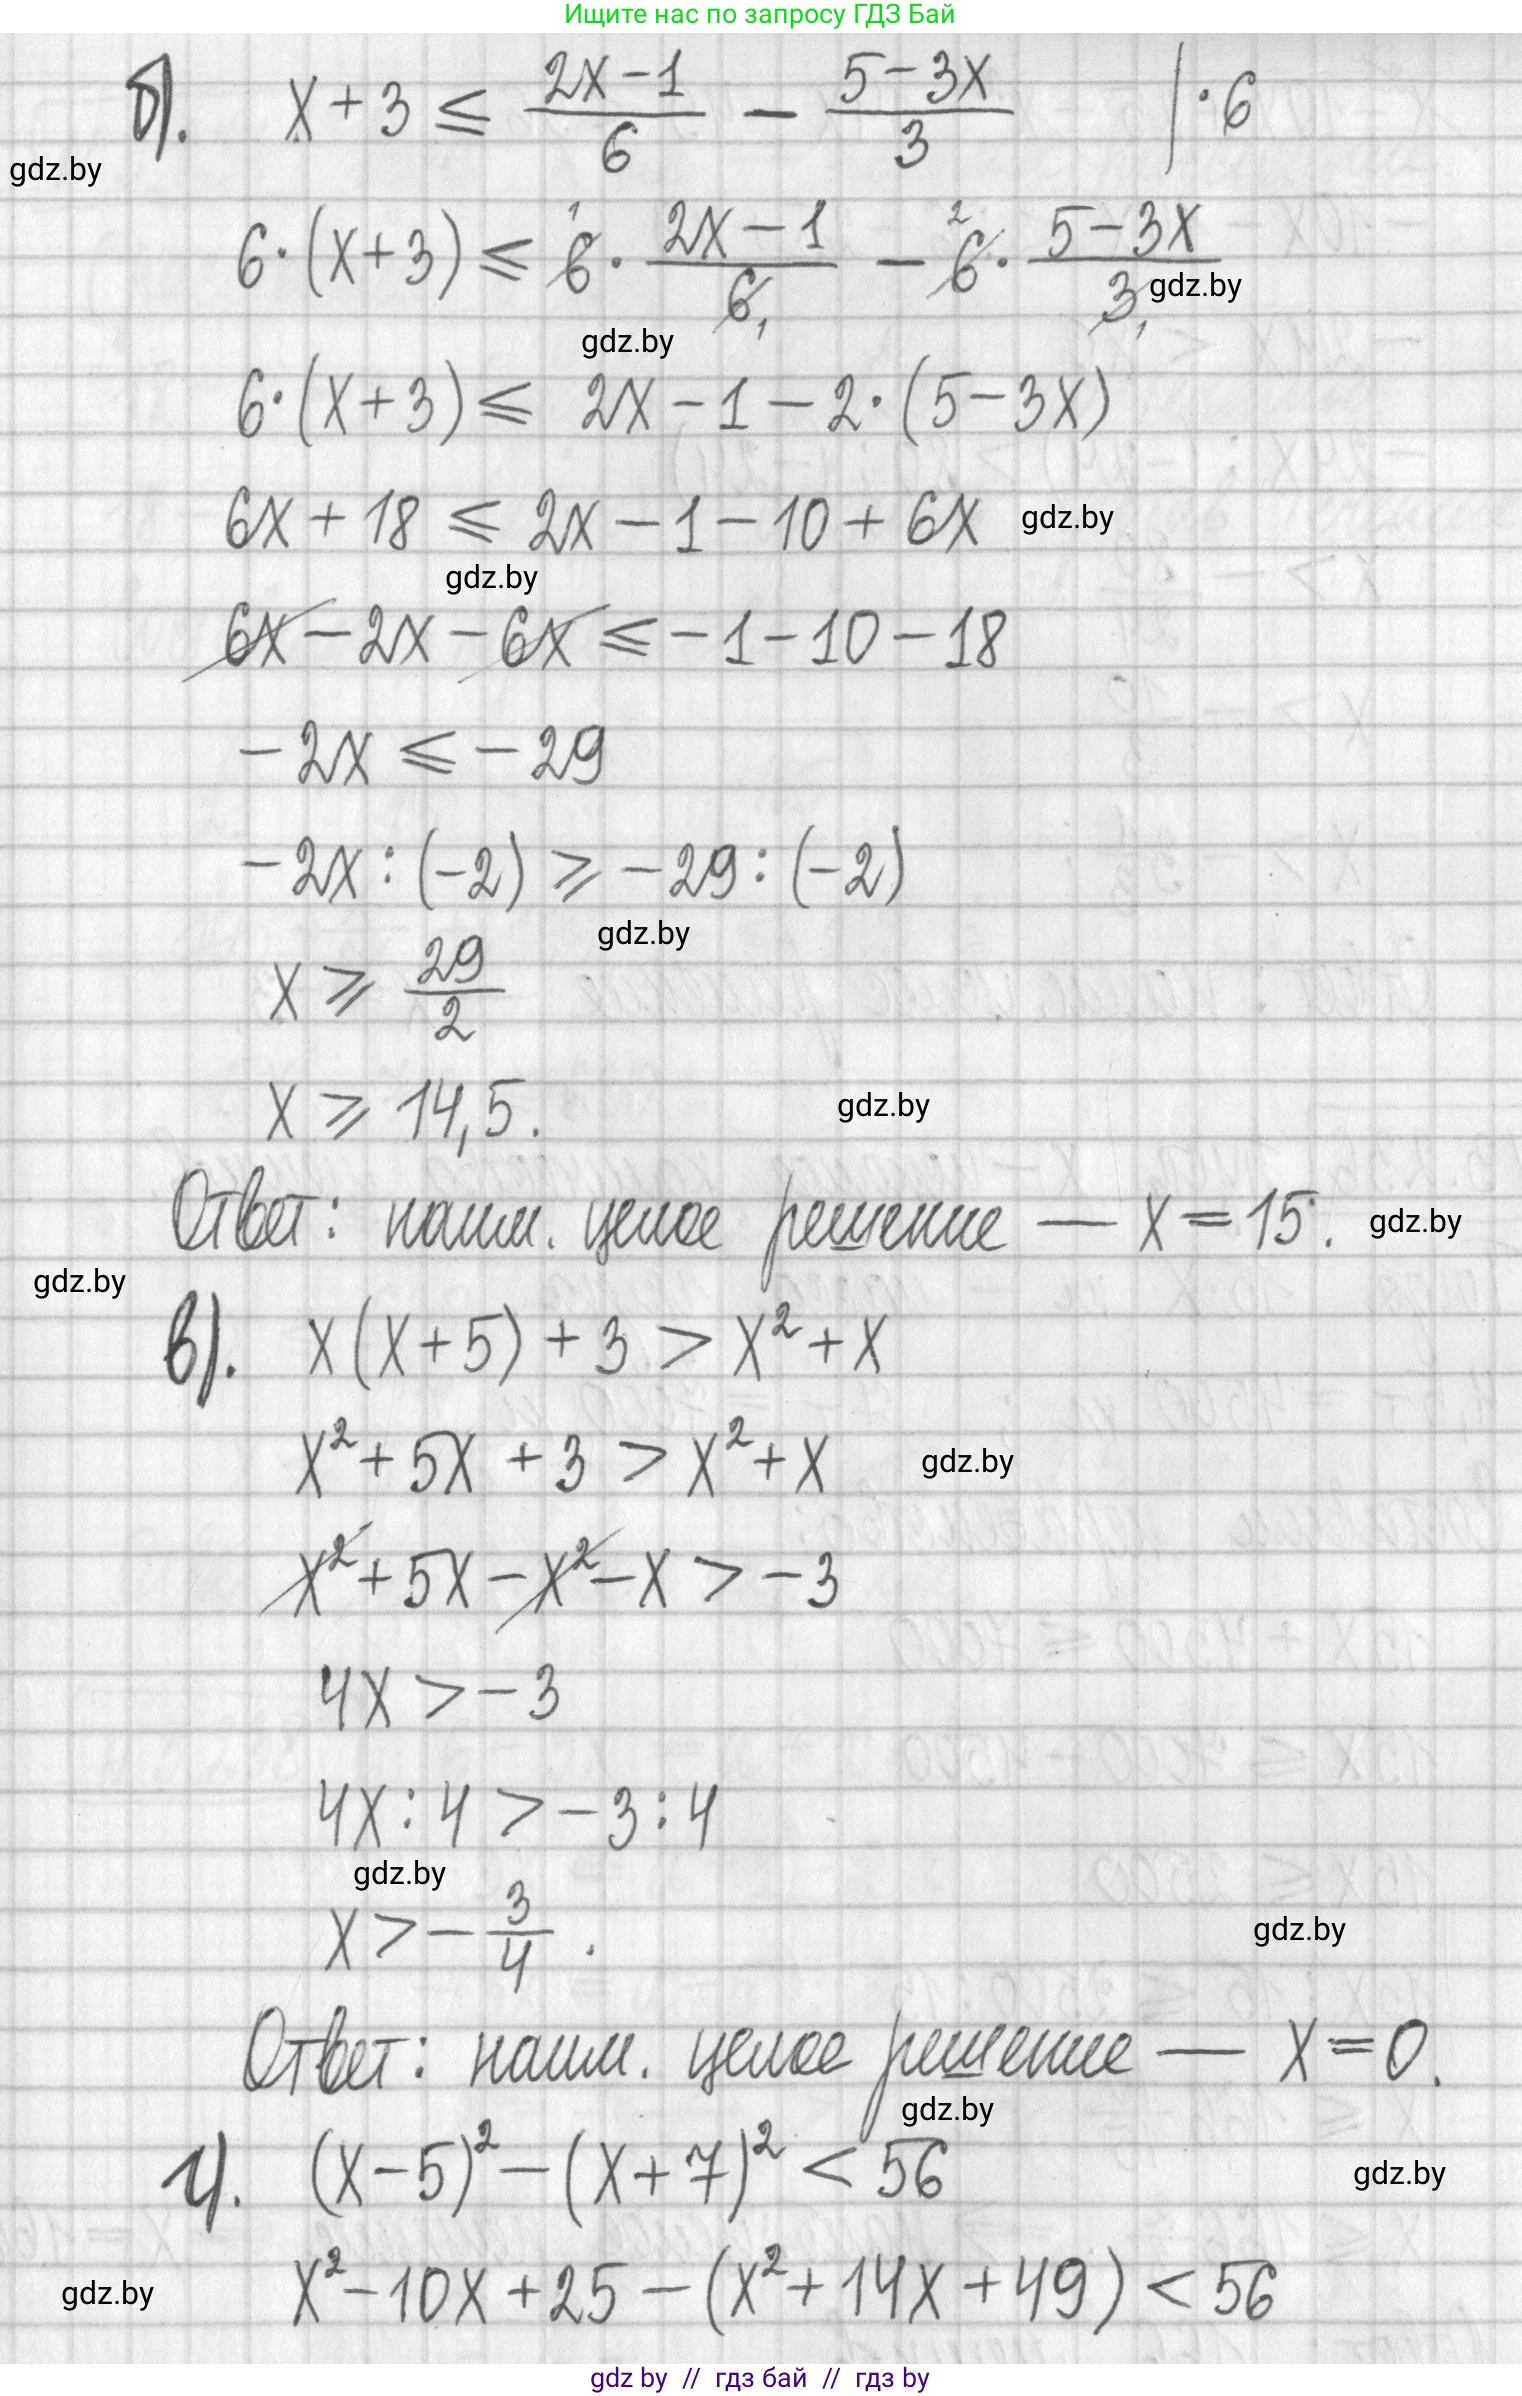 Ищите нас по запросу ГДЗ Бай
б). x + 3 ≤ (2x - 1)/6 - (5 - 3x)/3 | · 6
gdz.by
6 · (x + 3) ≤ 6 · (2x - 1)/6 - 6 · (5 - 3x)/3
gdz.by
gdz.by
6 · (x + 3) ≤ 2x - 1 - 2 · (5 - 3x)
6x + 18 ≤ 2x - 1 - 10 + 6x gdz.by
gdz.by
6x - 2x - 6x ≤ -1 - 10 - 18
-2x ≤ -29
-2x : (-2) ≥ -29 : (-2)
gdz.by
x ≥ 29/2
x ≥ 14,5. gdz.by
Ответ: наим. целое решение — x = 15. gdz.by
gdz.by
в). x(x + 5) + 3 > x² + x
x² + 5x + 3 > x² + x gdz.by
x² + 5x - x² - x > -3
4x > -3
4x : 4 > -3 : 4
gdz.by
x > -3/4. gdz.by
Ответ: наим. целое решение — x = 0.
gdz.by
г). (x - 5)² - (x + 7)² < 56 gdz.by
x² - 10x + 25 - (x² + 14x + 49) < 56
gdz.by
gdz by // гдз бай // гдз by